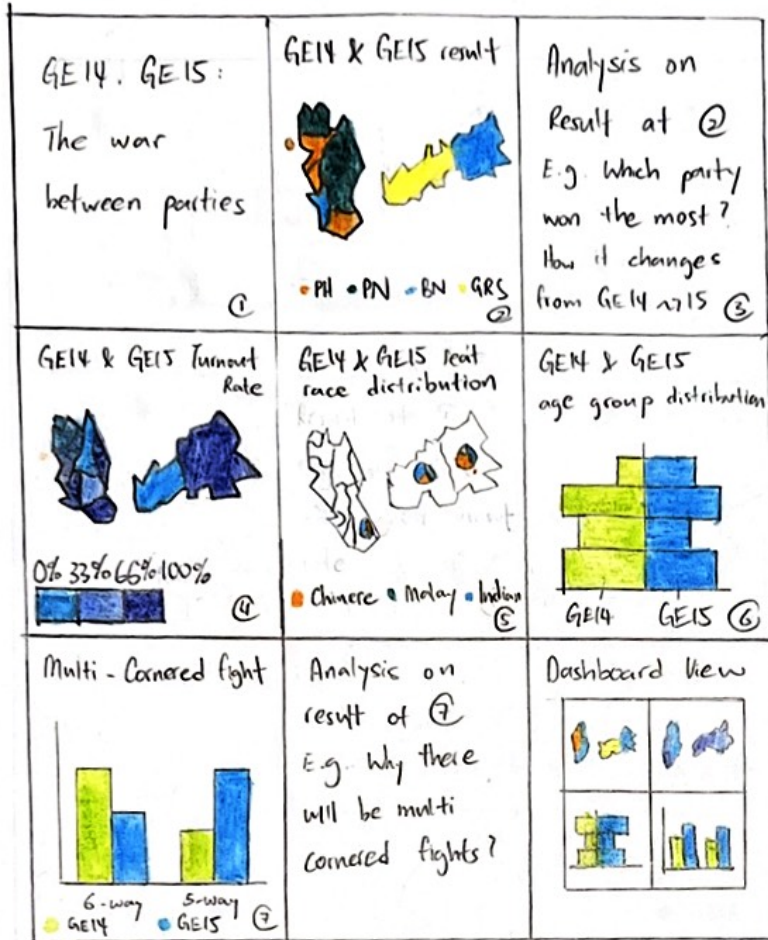 GE14. GE15:
The war
between parties
①
GE14 & GE15 result
•PH •PN •BN •GRS
②
Analysis on
Result at ②
E.g. Which party
won the most?
How it changes
from GE14 ~> 15 ③
GE14 & GE15 Turnout
Rate
0% 33% 66% 100%
④
GE14 & GE15 seat
race distribution
Chinese • Malay • Indian
⑤
GE14 & GE15
age group distribution
GE14 GE15 ⑥
Multi-Cornered fight
6-way 5-way
GE14 GE15 ⑦
Analysis on
result of ⑦
E.g. Why there
will be multi
cornered fights?
Dashboard View